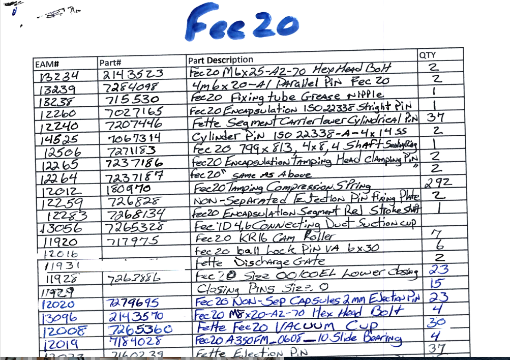 Fec20
EAM# Part# Part Description QTY
13234 2143523 Fec20 M6x25-A2-70 Hex Head Bolt 2
13239 7284098 4m6x20-A1 Parallel Pin Fec20 2
13238 715530 Fec20 Fixing tube Grease nipple 1
12260 7027165 Fec20 Encapsulation ISO 22338 Stright Pin 1
12240 7207446 Fette Segment Carrier lower Cylindrical Pin 37
14525 7067314 Cylinder Pin ISO 22338-A-4x14 SS 2
12506 7271183 Fec20 799x813, 4x8,4 Shaft 1
12265 7237186 Fec20 Encapsulation Tamping Head Clamping Pin 2
12264 7237187 Fec20 " same as Above " 2
12012 180970 Fec20 Tamping Compression Spring 292
12259 726828 Non-Separated Ejection Pin Firing Plate 2
12283 7268134 Fec20 Encapsulation Segment Rel Stroke Shaft 1
13056 7265328 Fec ID 4,6 Connecting Duct Suction cup
11920 717975 Fec20 KR16 Cam Roller 7
12016 Fec20 ball Lock Pin VA 6x30 6
11931 Fette Discharge Gate 2
11928 7267886 Fec20 Size 00/00EL Lower Closing 23
11929 Closing Pins Size: 0 15
12020 7279695 Fec20 Non-Sep Capsules 2mm Ejection Pin 23
13096 2143570 Fec20 M8x20-A2-70 Hex Head Bolt 4
12008 7265360 Fette Fec20 Vacuum Cup 30
12019 7184028 Fec20 A350FM_0608_10 Slide Bearing 4
7160239 Fette Ejection Pin 37